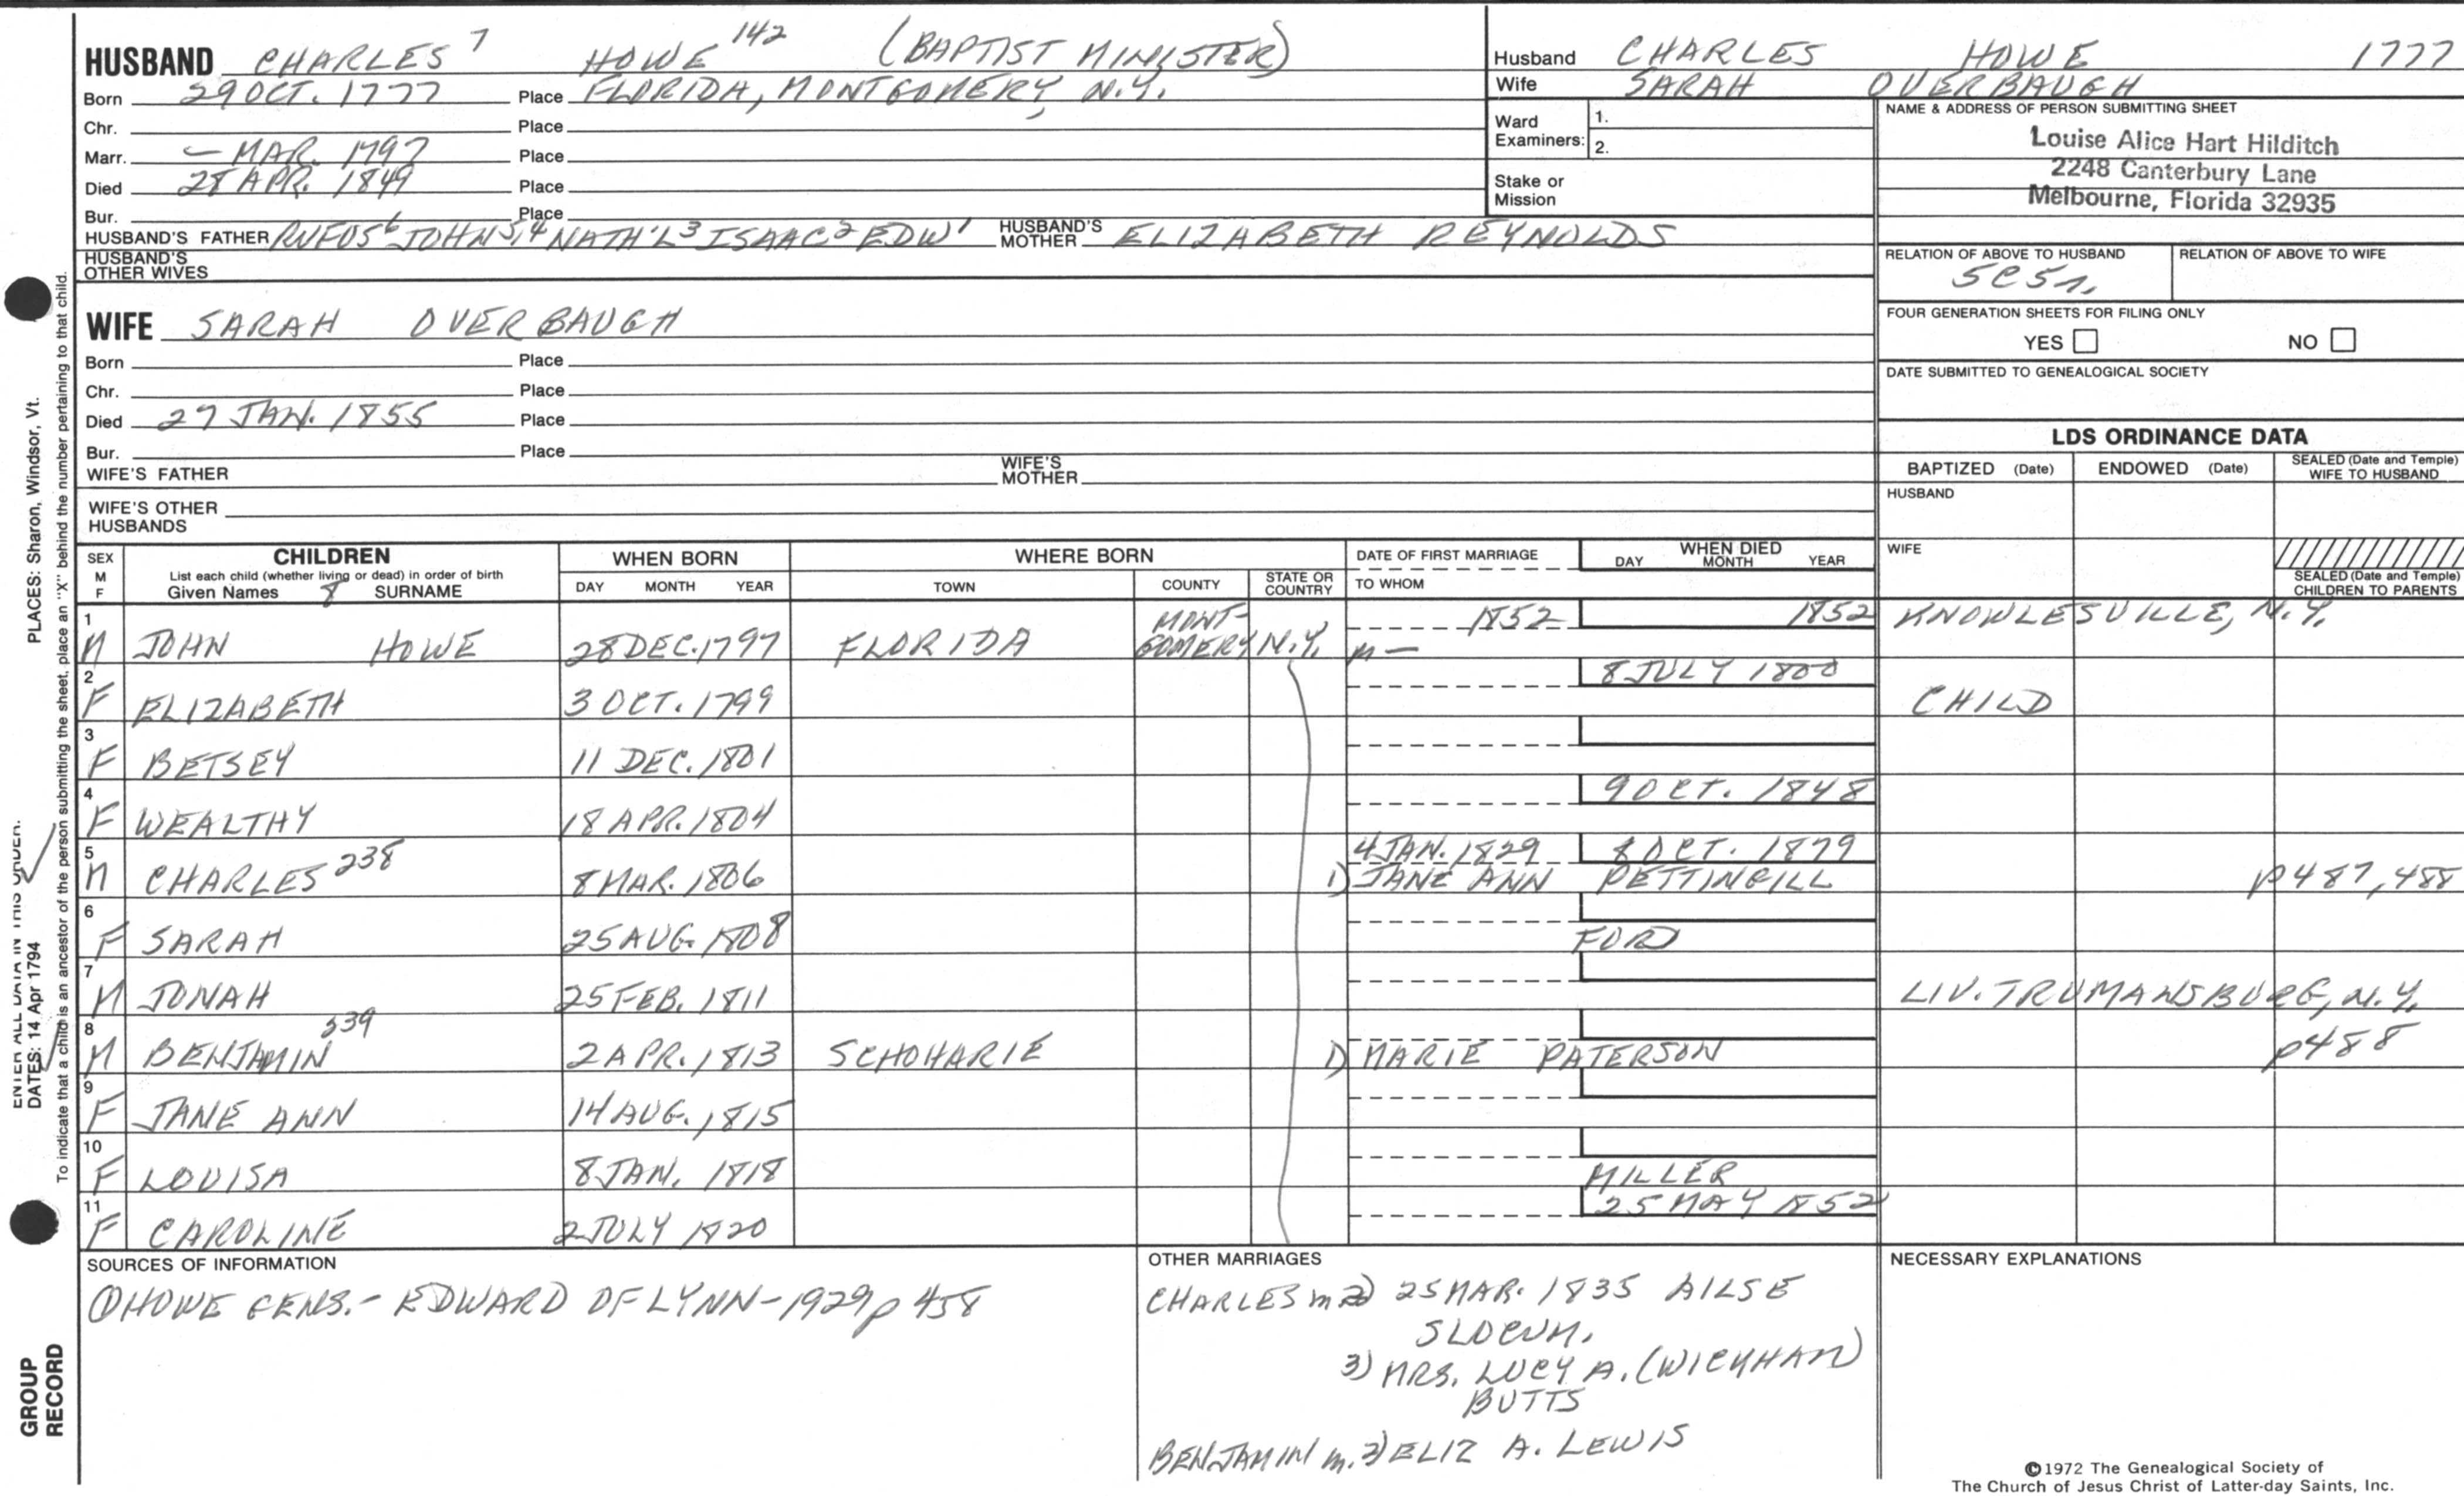 HUSBAND CHARLES 7 HOWE 142 (BAPTIST MINISTER)
Born 29 OCT. 1777 Place FLORIDA, MONTGOMERY, N.Y.
Chr. Place
Marr. – MAR. 1797 Place
Died 28 APR. 1849 Place
Bur. Place
HUSBAND'S FATHER RUFUS 6 JOHN 5,4 NATH'L 3 ISAAC 2 EDW 1 HUSBAND'S MOTHER ELIZABETH REYNOLDS
HUSBAND'S OTHER WIVES
WIFE SARAH OVERBAUGH
Born Place
Chr. Place
Died 27 JAN. 1855 Place
Bur. Place
WIFE'S FATHER WIFE'S MOTHER
WIFE'S OTHER HUSBANDS
Husband CHARLES HOWE 1777
Wife SARAH OVERBAUGH
Ward Examiners: 1.
2.
Stake or Mission
NAME & ADDRESS OF PERSON SUBMITTING SHEET
Louise Alice Hart Hilditch
2248 Canterbury Lane
Melbourne, Florida 32935
RELATION OF ABOVE TO HUSBAND RELATION OF ABOVE TO WIFE
5C5r.
FOUR GENERATION SHEETS FOR FILING ONLY
YES NO
DATE SUBMITTED TO GENEALOGICAL SOCIETY
LDS ORDINANCE DATA
BAPTIZED (Date) ENDOWED (Date) SEALED (Date and Temple) WIFE TO HUSBAND
HUSBAND
WIFE
SEALED (Date and Temple) CHILDREN TO PARENTS
SEX M F CHILDREN WHEN BORN WHERE BORN DATE OF FIRST MARRIAGE WHEN DIED
List each child (whether living or dead) in order of birth
Given Names 8 SURNAME DAY MONTH YEAR TOWN COUNTY STATE OR COUNTRY TO WHOM DAY MONTH YEAR
1 M JOHN HOWE 28 DEC. 1797 FLORIDA MONT-GOMERY N.Y. 1852 m – 1852 KNOWLESVILLE, N.Y.
2 F ELIZABETH 3 OCT. 1799 8 JULY 1800 CHILD
3 F BETSEY 11 DEC. 1801
4 F WEALTHY 18 APR. 1804 9 OCT. 1848
5 M CHARLES 238 8 MAR. 1806 4 JAN. 1829 8 OCT. 1879
1) JANE ANN PETTINGILL p487,488
6 F SARAH 25 AUG. 1808 FORD
7 M JONAH 25 FEB. 1811 LIV. TRUMANSBURG, N.Y.
8 M BENJAMIN 239 2 APR. 1813 SCHOHARIE 1) MARIE PATERSON p488
9 F JANE ANN 14 AUG. 1815
10 F LOUISA 8 JAN. 1818 MILLER
11 F CAROLINE 2 JULY 1820 25 MAY 1852
SOURCES OF INFORMATION
① HOWE GENS. – EDWARD OF LYNN – 1929 p 458
OTHER MARRIAGES
CHARLES m 2) 25 MAR. 1835 AILSE
SLOCUM.
3) MRS. LUCY A. (WICKHAM)
BUTTS
BENJAMIN m. 2) ELIZ A. LEWIS
NECESSARY EXPLANATIONS
©1972 The Genealogical Society of
The Church of Jesus Christ of Latter-day Saints, Inc.
PLACES: Sharon, Windsor, Vt.
To indicate that a child is an ancestor of the person submitting the sheet, place an "X" behind the number pertaining to that child.
ENTER ALL DATA IN THIS ORDER:
DATES: 14 Apr 1794
GROUP
RECORD